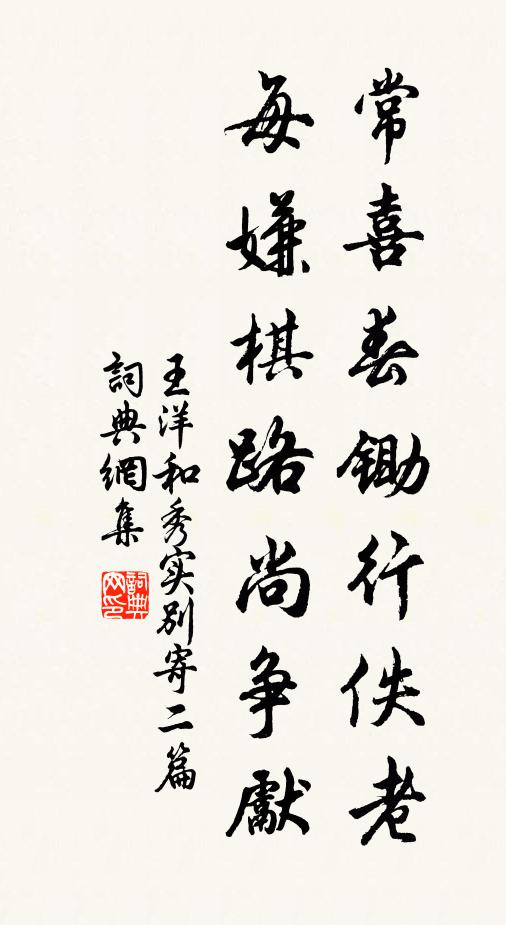 常喜春鋤行佚老
每嫌棋路尚争獻
王洋和秀实别寄二篇
詞典網集
詞典网印